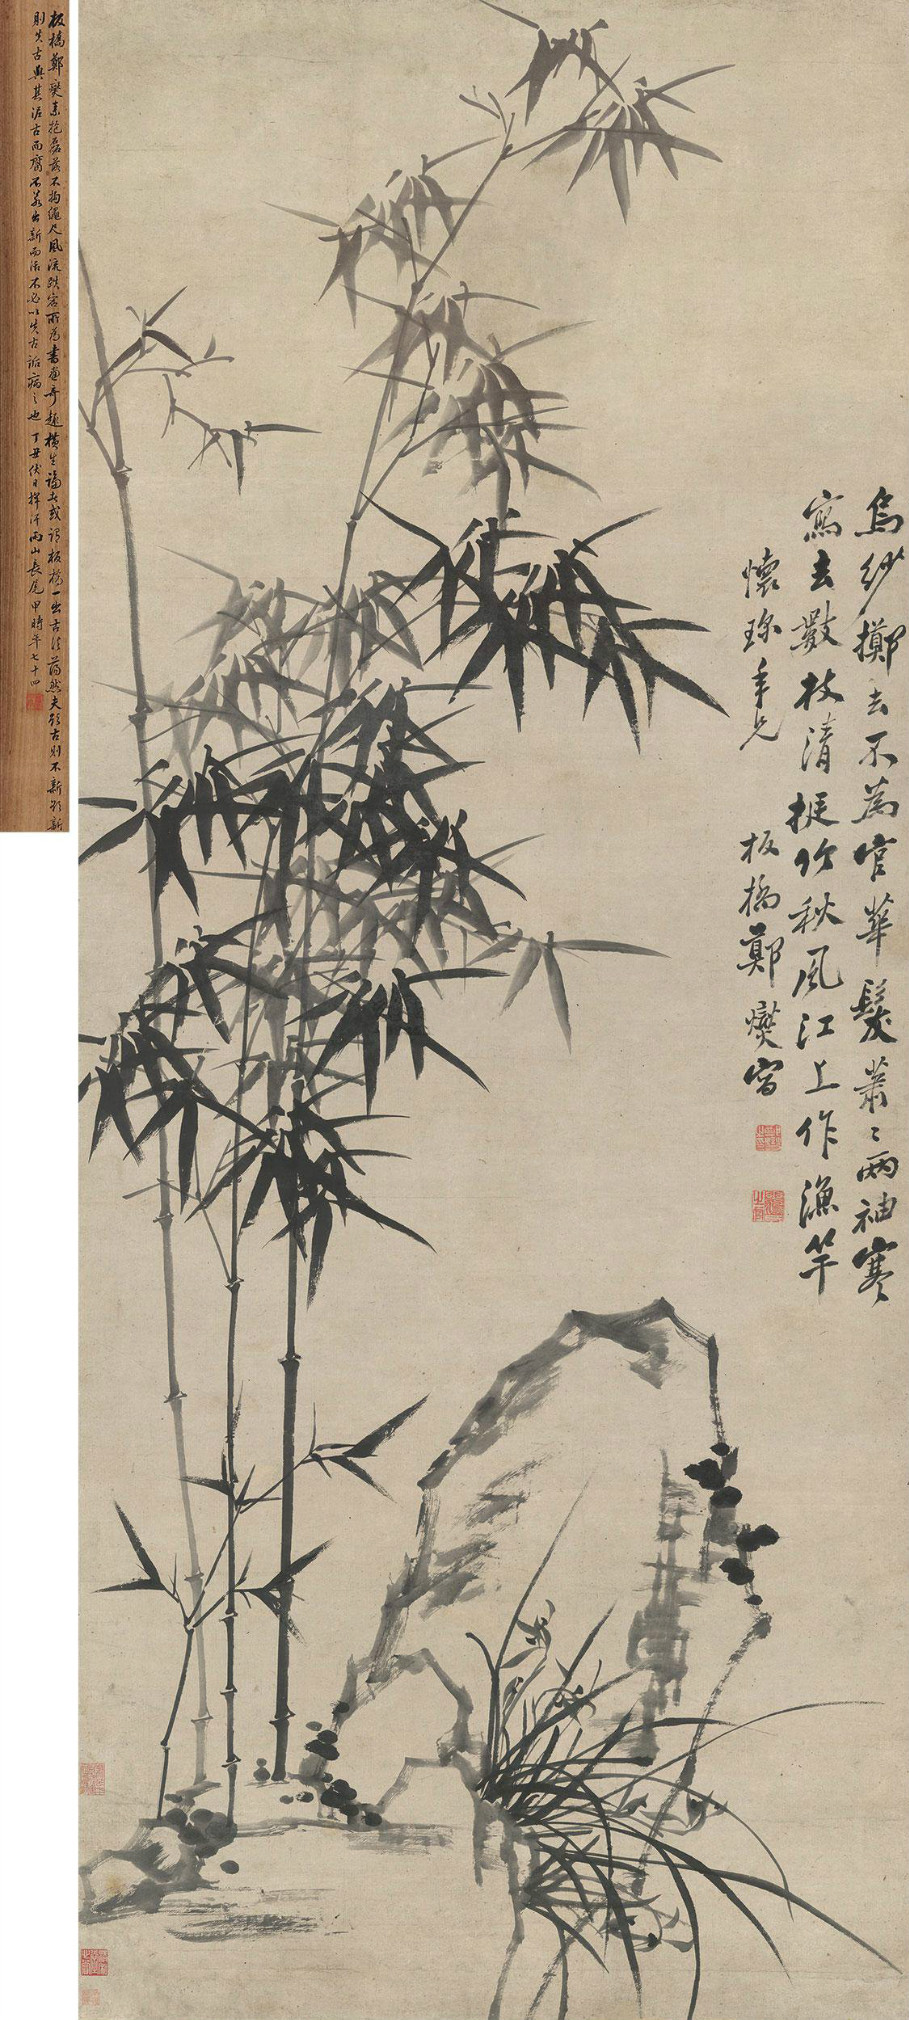 烏紗擲去不為官華髮蕭〻兩袖寒
寫去數枝清挺竹秋風江上作漁竿
懷珍年兄
板橋鄭燮寫
板橋鄭燮素抱磊落不拘繩尺風流跌宕所為書畫奇趣橫生論者或謂板橋一出古法蕩然夫欲古則不新欲新
則失古與其泥古而腐不若出新而活不必以失古詬病之也丁丑伏日揮汗雨山長尾甲時年七十四